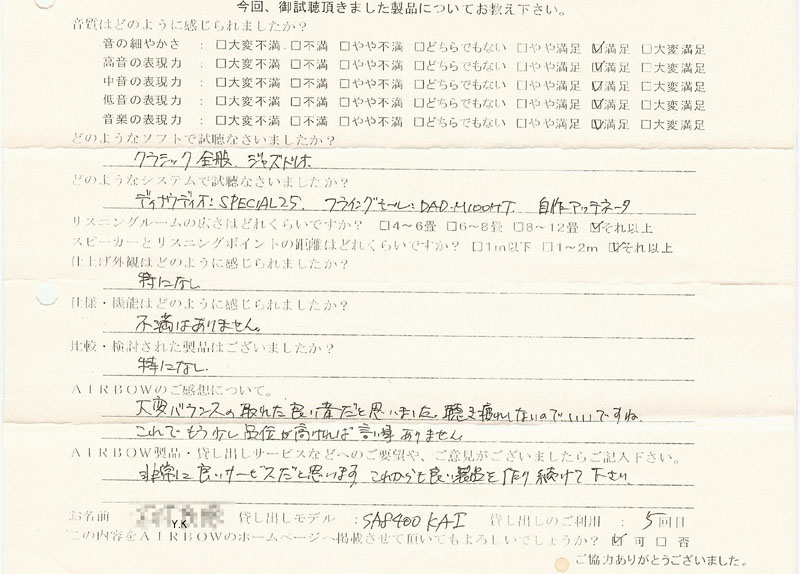 今回、御試聴頂きました製品についてお教え下さい。
音質はどのように感じられましたか？
音の細やかさ ： □大変不満 □不満 □やや不満 □どちらでもない □やや満足 ☑満足 □大変満足
高音の表現力 ： □大変不満 □不満 □やや不満 □どちらでもない □やや満足 ☑満足 □大変満足
中音の表現力 ： □大変不満 □不満 □やや不満 □どちらでもない □やや満足 ☑満足 □大変満足
低音の表現力 ： □大変不満 □不満 □やや不満 □どちらでもない □やや満足 ☑満足 □大変満足
音楽の表現力 ： □大変不満 □不満 □やや不満 □どちらでもない □やや満足 ☑満足 □大変満足
どのようなソフトで試聴なさいましたか？
クラシック全般、ジャズトリオ
どのようなシステムで試聴なさいましたか？
ディナウディオ：SPECIAL25、フライングモール：DAD-M100HT、自作アッテネータ
リスニングルームの広さはどれくらいですか？ □4～6畳 □6～8畳 □8～12畳 ☑それ以上
スピーカーとリスニングポイントの距離はどれくらいですか？ □1m以下 □1～2m ☑それ以上
仕上げ外観はどのように感じられましたか？
特になし
仕様・機能はどのように感じられましたか？
不満はありません。
比較・検討された製品はございましたか？
特になし
AIRBOWのご感想について。
大変バランスの取れた良い音だと思いました。聴き疲れしないのでいいですね。
これでもう少し品位が高ければ言う事ありません。
AIRBOW製品・貸し出しサービスなどへのご要望や、ご意見がございましたらご記入下さい。
非常に良いサービスだと思います。これからも良い製品を作り続けて下さい。
お名前 Y.K 貸し出しモデル ：SA8400KAI 貸し出しのご利用 ： 5回目
この内容をAIRBOWのホームページへ掲載させて頂いてもよろしいでしょうか？ ☑可 □否
ご協力ありがとうございました。